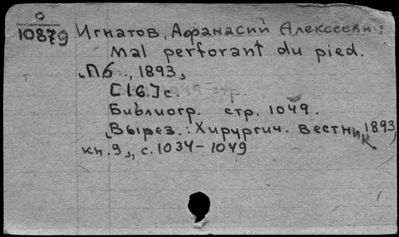 10879 Игнатов, Афанасий Алексеевич.
Mal perforant du pied.
„Пб.", 1893,
[16.] с.
Библиогр. стр. 1049.
„Вырез.: Хирургич. Вестник, 1893,
кн. 9„, с. 1034-1049